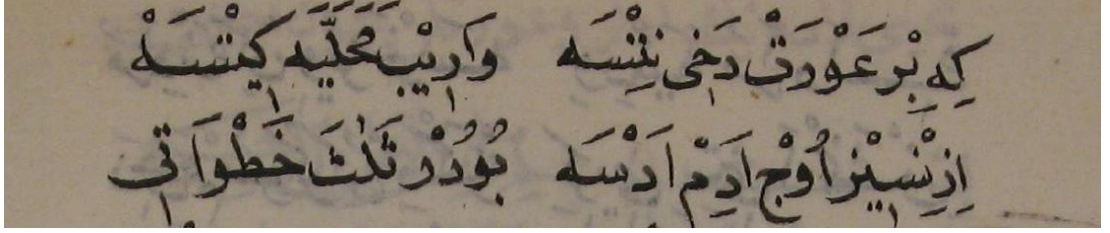 كِه بِرْ عَوْرَتْ دَخِى نِيتْسَه وَارِيْبْ مَحَلِّيَه كِيتْسَهْ
اِذِنْسِيْزْ اُوْجْ اَدِمْ اَدْسَه بُودُرْ ثَلٰثَ خَطْوَاتِى